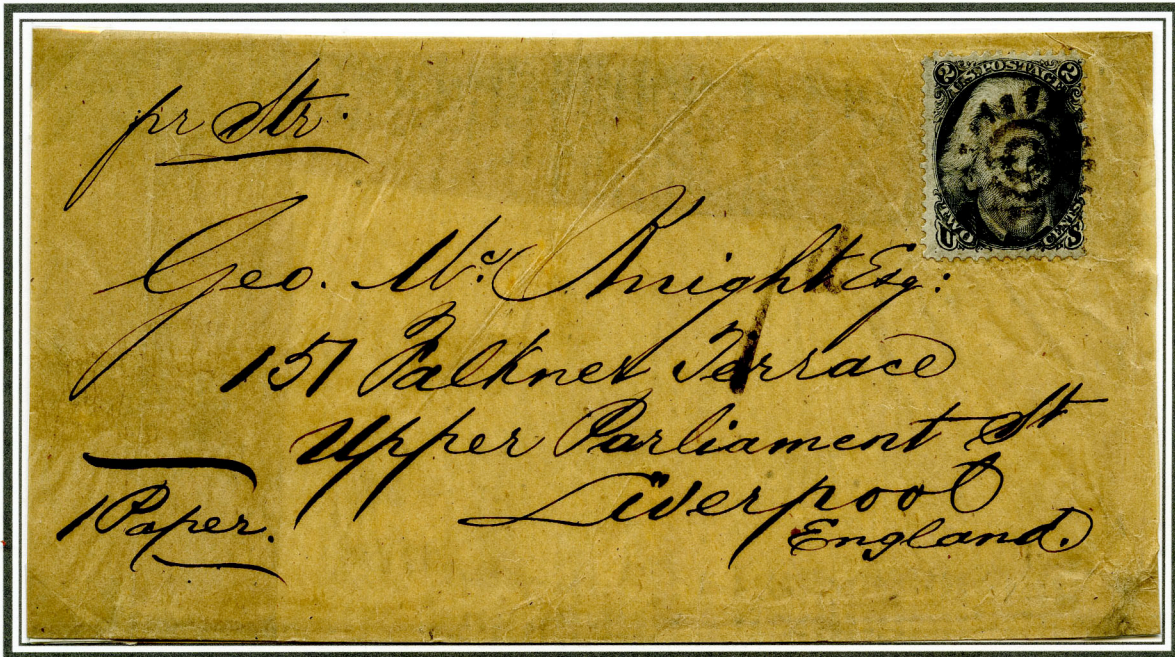 pr Str.
2 U.S. POSTAGE 2
TWO CENTS
U S
Geo. Mc. Knight Esq:
157 Falkner Terrace
Upper Parliament St
Liverpool
England.
1 Paper.